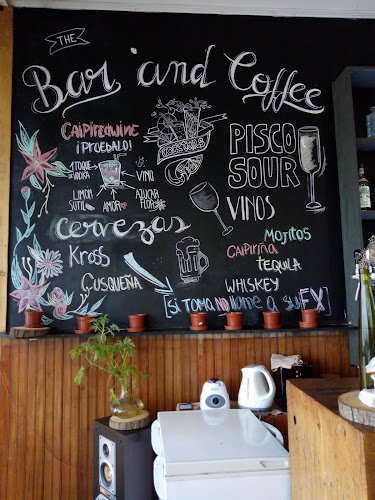 THE
Bar and Coffee
CAIPIROWINE
¡PRUEBALO!
1 TOQUE
DE VODKA
VINO
LIMÓN
SUTIL
AMOR
AZÚCAR
FLOR
COCKTAILS
PISCO
SOUR
VINOS
Cervezas
Kross
CUSQUEÑA
MOJITOS
CAIPIRIÑA
TEQUILA
WHISKEY
[SI TOMA NO LLAME A SU EX]